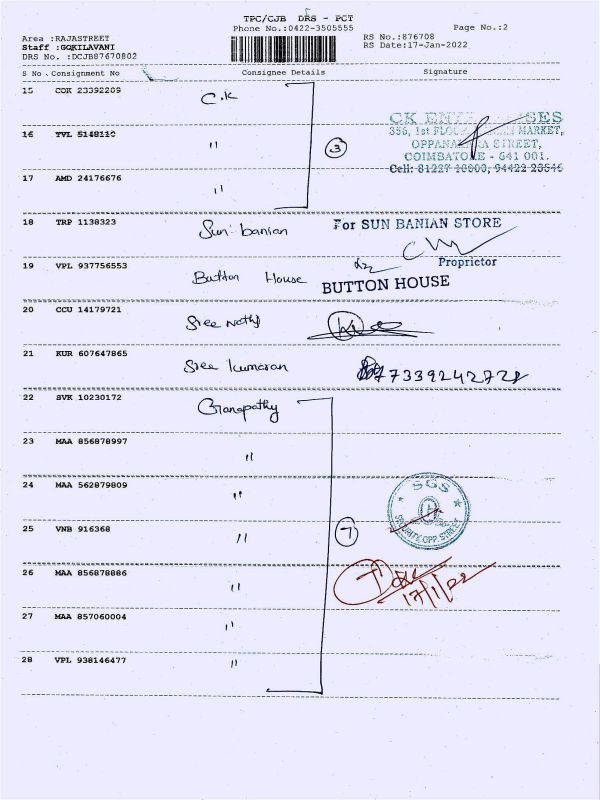 TPC/CJB DRS - PCT
Phone No.:0422-3505555
Page No.:2
Area :RAJASTREET
Staff :GOKILAVANI
DRS No. :DCJB87670802
RS No.:876708
RS Date:17-Jan-2022
S No. Consignment No Consignee Details Signature
15 COK 23392209 C.K
16 TVL 5148110 "
3
CK
SES
356, 1st MARKET,
STREET,
COIMBATORE - 641 001.
Cell: 81227 10000, 94422 23546
17 AMD 24176676 "
18 TRP 1138323 Sun banian
For SUN BANIAN STORE
Proprietor
19 VPL 937756553 Button House
BUTTON HOUSE
20 CCU 14179721 Sree
21 KUR 607647865 Sree kumaran 7339242728
22 SVK 10230172 Ganapathy
23 MAA 856878997 "
24 MAA 562879809 "
SGS
SECURITY, OPP. STREET
25 VNB 916368 "
7
26 MAA 856878886 "
7
17/1/22
27 MAA 857060004 "
28 VPL 938146477 "